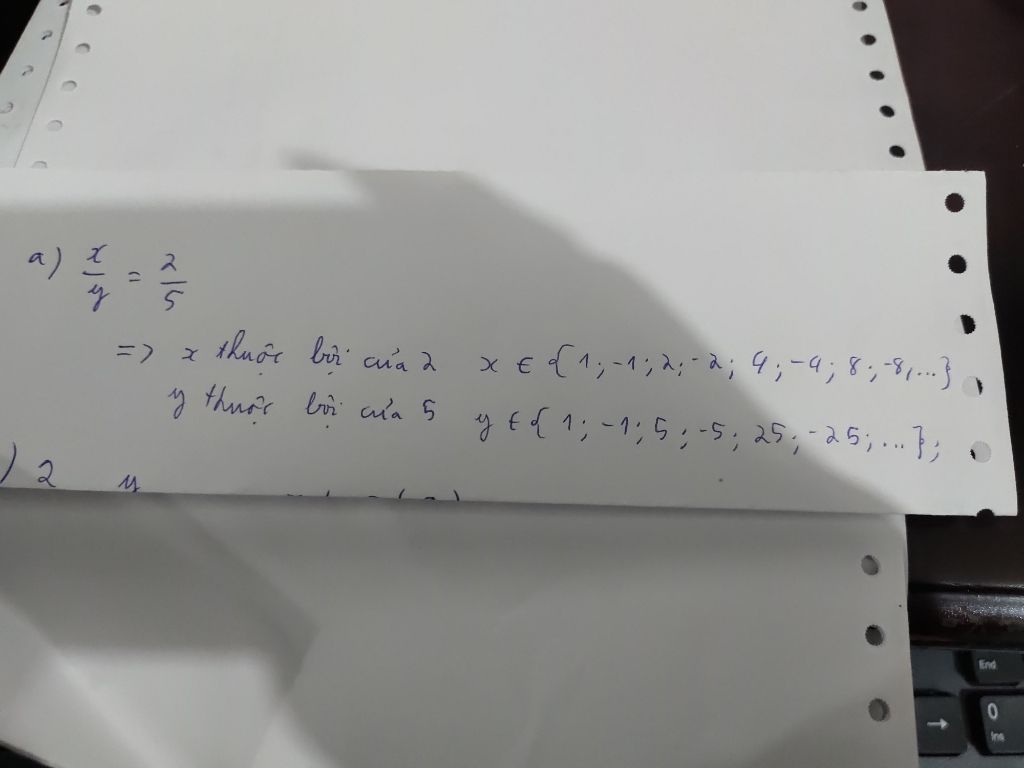 a) x/y = 2/5
=> x thuộc bội của 2 x ∈ {1; -1; 2; -2; 4; -4; 8; -8, ...}
y thuộc bội của 5 y ∈ { 1; -1; 5; -5; 25; -25; ...};
) 2 y
End
→
0
Ins